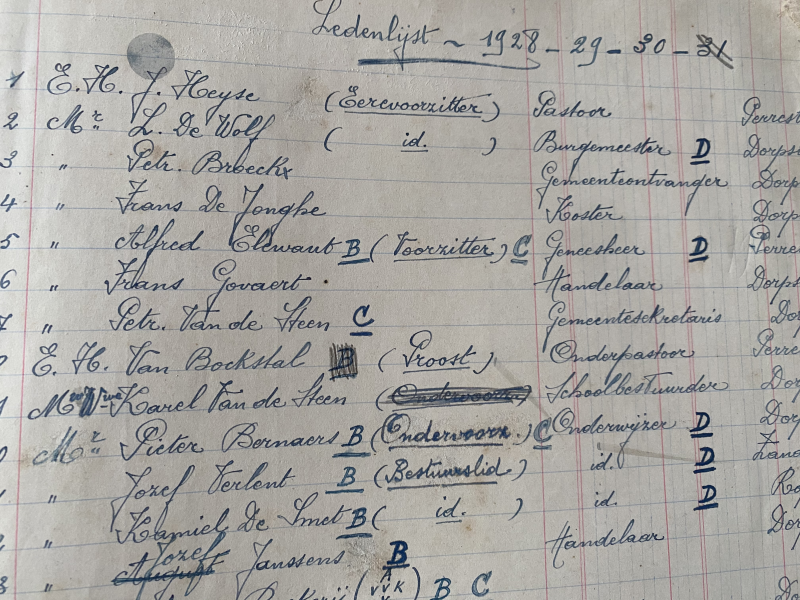 Ledenlijst ~ 1928 - 29 - 30 - 31
1 E. H. J. Heyse (Eerevoorzitter) Pastoor Perrest
2 Mr L. De Wolf ( id. ) Burgemeester D Dorps
3 " Petr. Broeckx Gemeenteontvanger Dorp
4 " Frans De Jonghe Koster Dorp
5 " Alfred Elewaut B (Voorzitter) C Geneesheer D Perre
6 " Frans Govaert Handelaar Dorps
7 " Petr. Van de Steen C Gemeentesekretaris Do
E. H. Van Bockstal B (Proost) Onderpastoor Perre
Karel Van de Steen (Ondervoorz.) Schoolbestuurder Dorp
Mr Pieter Bernaers B (Ondervoorz.) C Onderwijzer D Dorp
" Jozef Verlent B (Bestuurslid) id. D
" Kamiel De Smet B ( id. ) id. D Dor
Jozef
" August Janssens B Handelaar
(VVK) B C